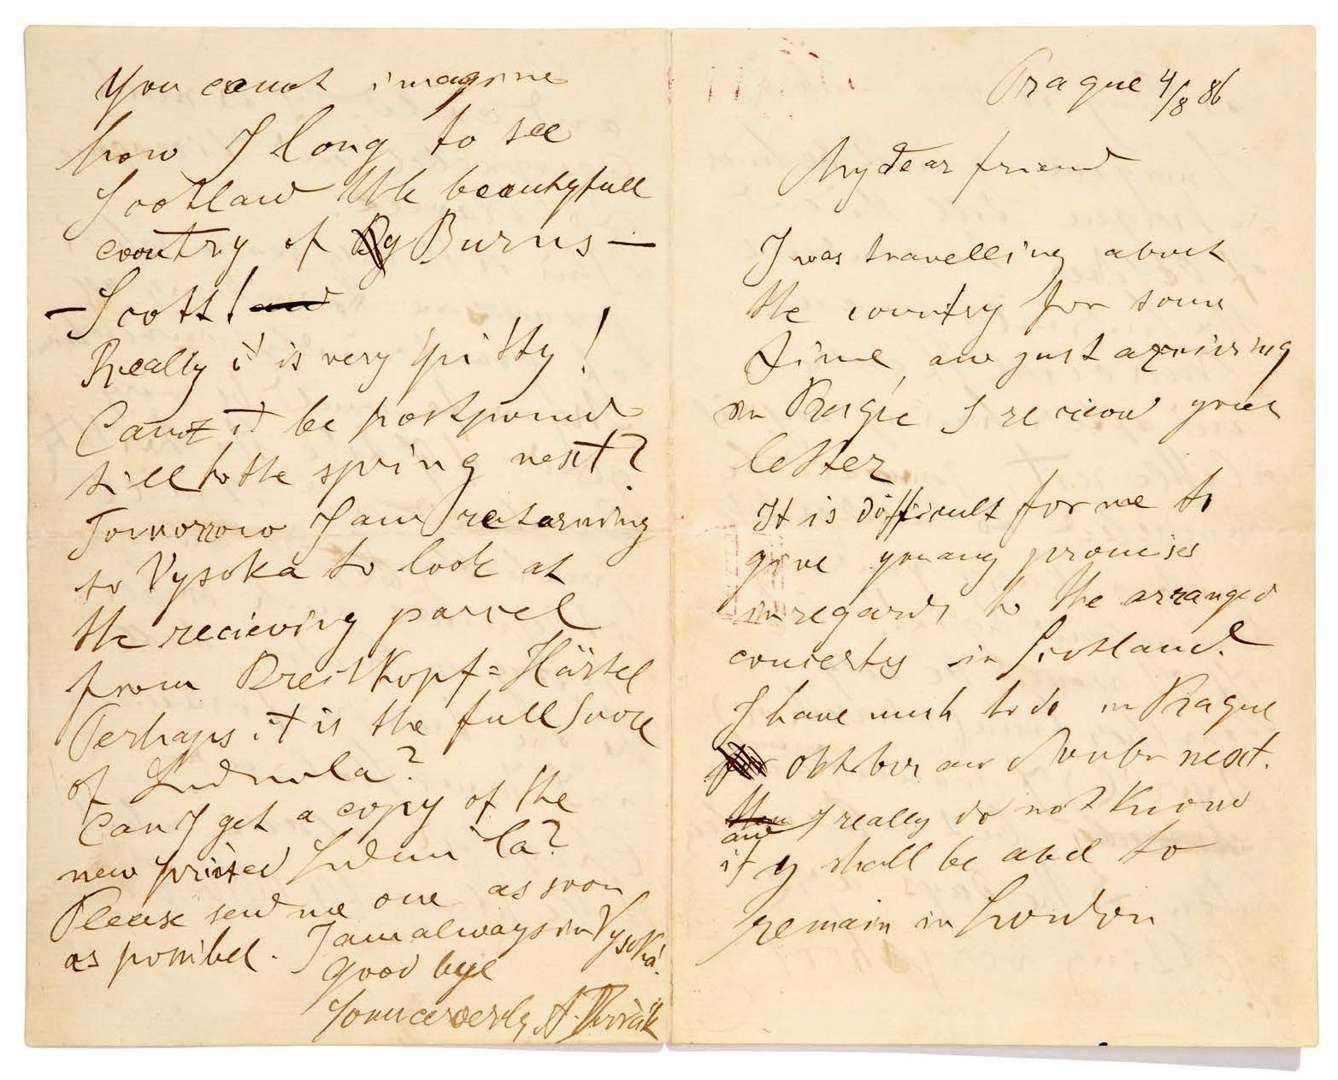 Prague 4/8 86
My dear friend
I was travelling about
the country for some
time, and just arriving
in Prague I recieved your
letter
It is difficult for me to
give you any promises
in regards to the arranged
concerts in Scotland.
I have much to do in Prague
oktober and next.
and I really do not know
if y shall be abel to
remain in London
You canot imagine
how I long to see
Scotland the beautyfull
country of Burns —
— Scott!
Really it is very pitty!
Canot it be postponed
till to the spring next?
Tomorrow I am returning
to Vysoka to look at
the recieving parcel
from Breitkopf = Härtel
Perhaps it is the full score
of Ludmila?
Can I get a copy of the
new printed Ludmila?
Please send me one as soon
as possibel. I am always in Vysoká!
Good bye
Your A. Dvořák